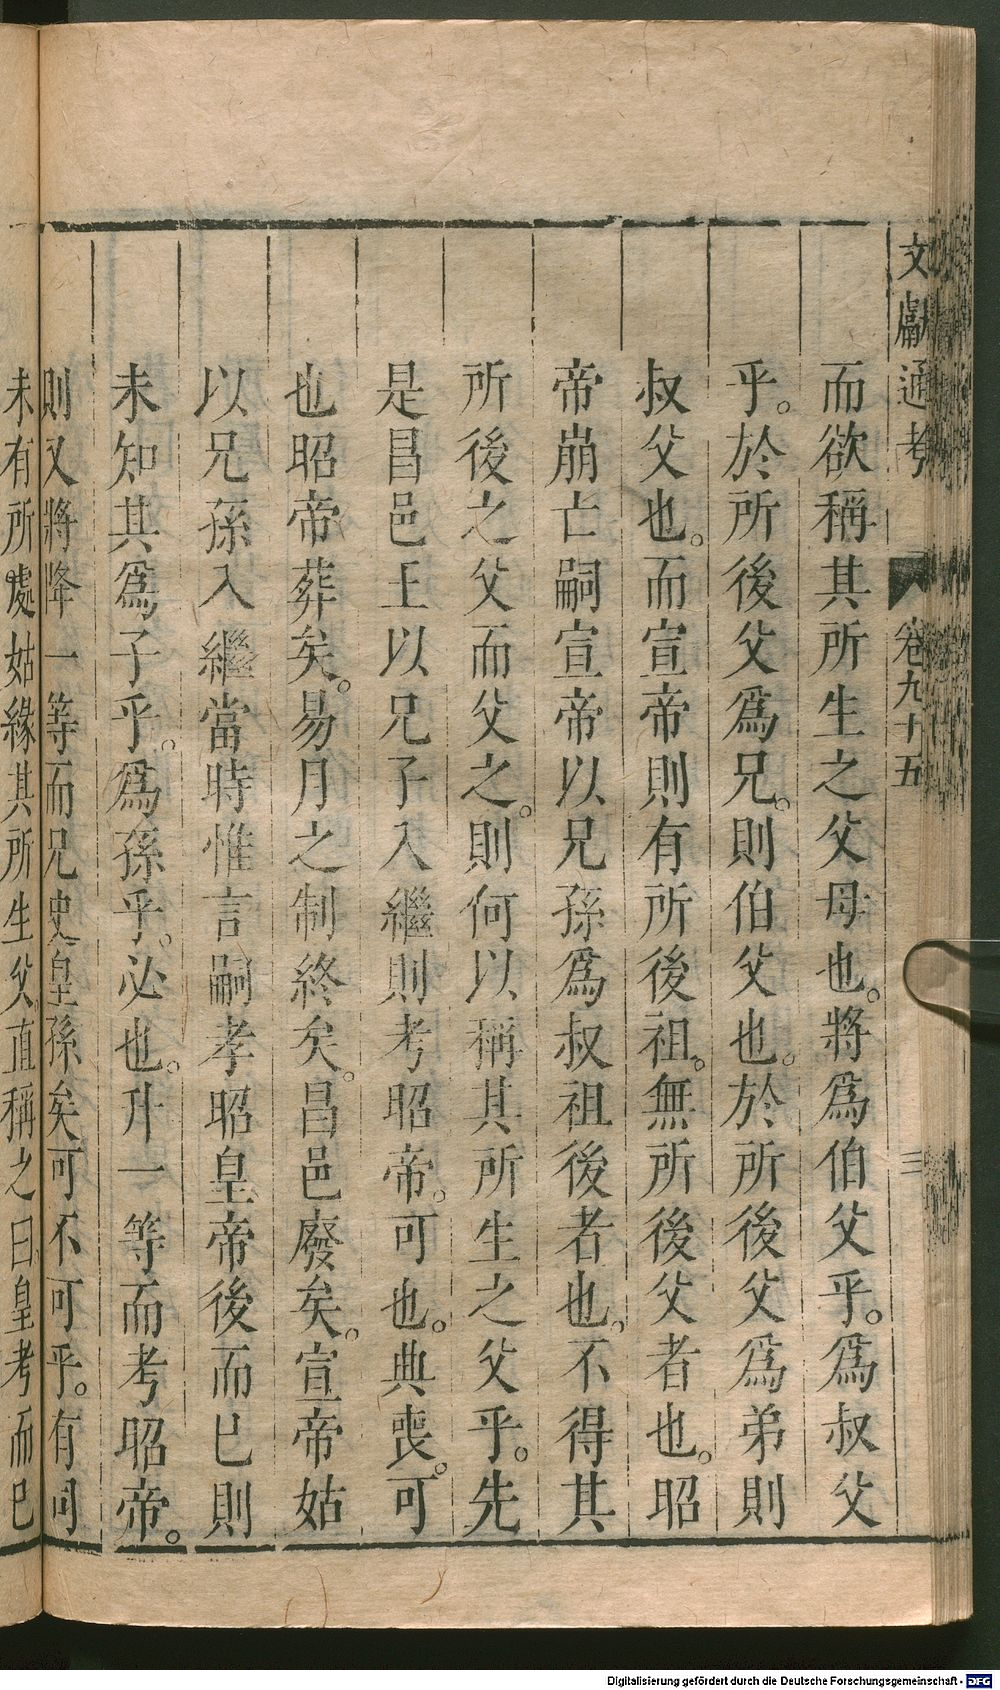 文獻通考 卷九十五 三
而欲稱其所生之父母也。將爲伯父乎。爲叔父
乎。於所後父爲兄。則伯父也。於所後父爲弟則
叔父也。而宣帝則有所後祖。無所後父者也。昭
帝崩亡嗣宣帝以兄孫爲叔祖後者也。不得其
所後之父而父之。則何以稱其所生之父乎。先
是昌邑王以兄子入繼則考昭帝。可也。典喪。可
也昭帝葬矣。易月之制終矣。昌邑廢矣。宣帝姑
以兄孫入繼當時惟言嗣孝昭皇帝後而已則
未知其爲子乎。爲孫乎。必也。升一等而考昭帝。
則又將降一等而兄史皇孫矣可不可乎。有司
未有所處姑緣其所生父直稱之曰皇考而已
Digitalisierung gefördert durch die Deutsche Forschungsgemeinschaft - DFG